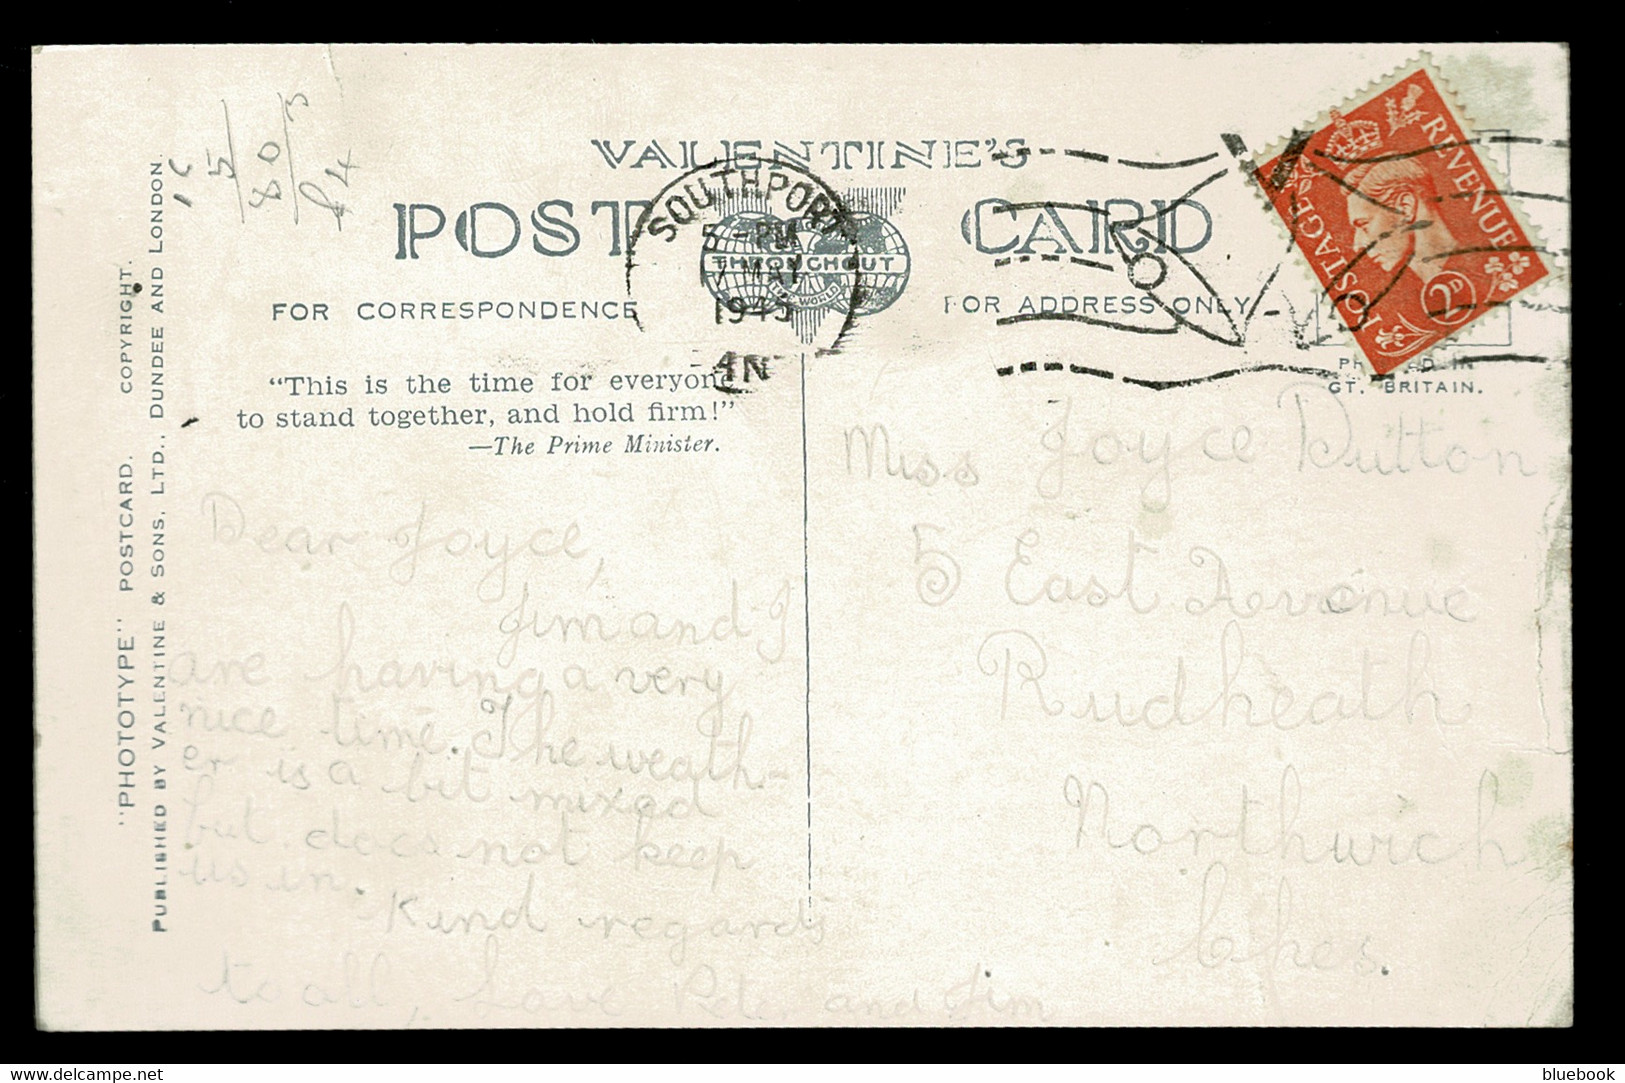 VALENTINE'S
POST CARD
THROUGHOUT
THE WORLD
FOR CORRESPONDENCE
FOR ADDRESS ONLY
SOUTHPORT
5 - PM
MAY
194
POSTAGE REVENUE
2D
PRINTED IN
GT. BRITAIN.
"This is the time for everyone
to stand together, and hold firm!"
—The Prime Minister.
"PHOTOTYPE" POSTCARD. COPYRIGHT.
PUBLISHED BY VALENTINE & SONS, LTD., DUNDEE AND LONDON.
5
80
£4
Dear Joyce,
Jim and I
are having a very
nice time. The weath-
er is a bit mixed
but does not keep
us in.
Kind regards
to all, Love Peter and Jim
Miss Joyce Dutton
5 East Avenue
Rudheath
Northwich
Ches.
delcampe.net
bluebook